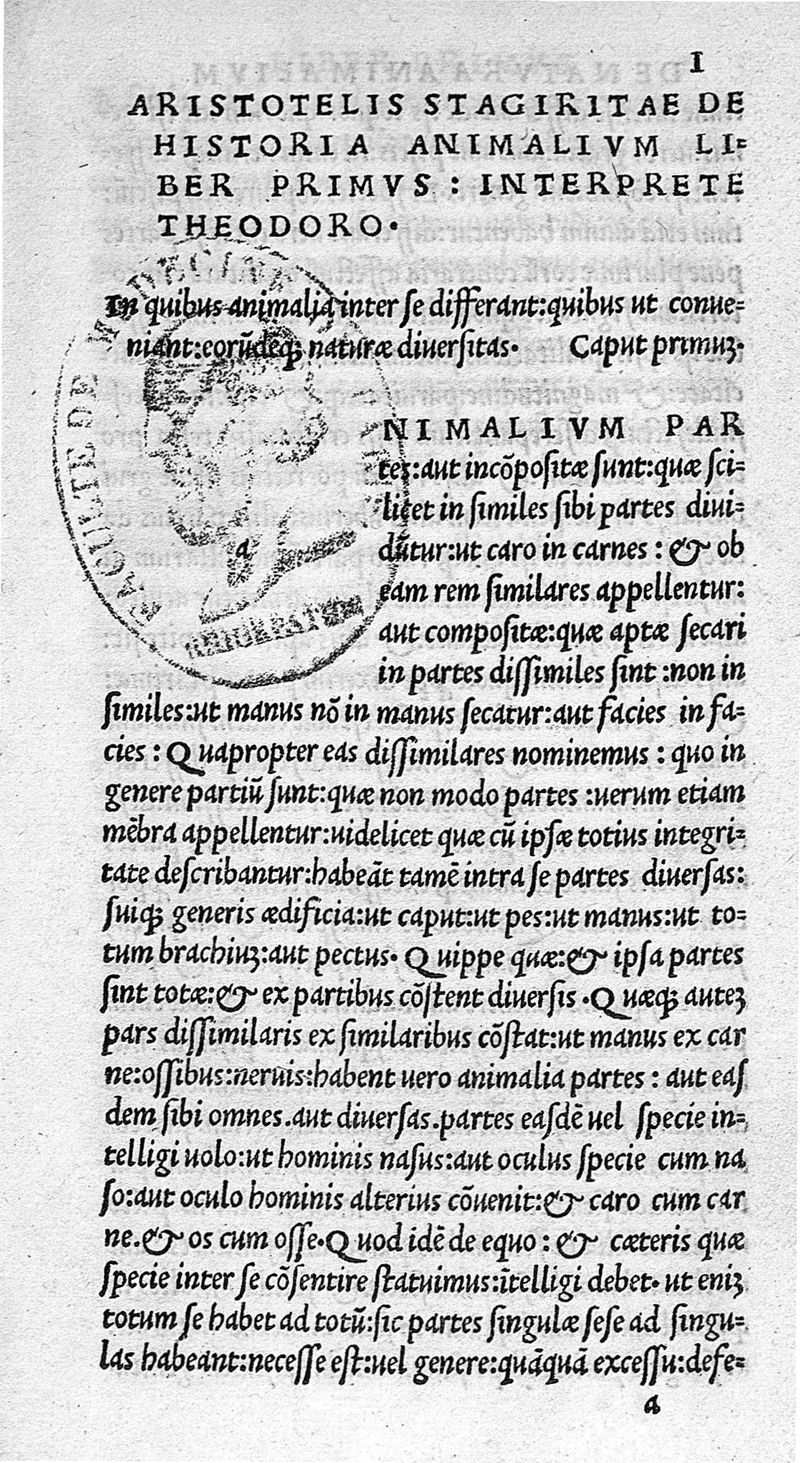 1
ARISTOTELIS STAGIRITAE DE
HISTORIA ANIMALIVM LI=
BER PRIMVS : INTERPRETE
THEODORO.
In quibus animalia inter se differant:quibus ut conue=
niant:eorũdeqꝫ naturæ diuersitas. Caput primuꝫ.
NIMALIVM PAR
tes:aut incõpositæ sunt:quæ sci=
licet in similes sibi partes diui=
a
dũtur:ut caro in carnes : & ob
eam rem similares appellentur:
aut compositæ:quæ aptæ secari
in partes dissimiles sint :non in
similes:ut manus nõ in manus secatur:aut facies in fa=
cies : Quapropter eas dissimilares nominemus : quo in
genere partiũ sunt:quæ non modo partes :uerum etiam
mẽbra appellentur:uidelicet quæ cũ ipsæ totius integri=
tate describantur:habeãt tamẽ intra se partes diuersas:
suiqꝫ generis ædificia:ut caput:ut pes:ut manus:ut to=
tum brachiuꝫ:aut pectus. Quippe quæ:& ipsa partes
sint totæ:& ex partibus cõstent diuersis .Quæqꝫ auteꝫ
pars dissimilaris ex similaribus cõstat:ut manus ex car
ne:ossibus:neruis:habent uero animalia partes : aut eas
dem sibi omnes.aut diuersas.partes easdẽ uel specie in=
telligi uolo:ut hominis nasus:aut oculus specie cum na
so:aut oculo hominis alterius cõuenit:& caro cum car
ne.& os cum osse.Quod idẽ de equo : & cæteris quæ
specie inter se cõsentire statuimus:ĩtelligi debet. ut eniꝫ
totum se habet ad totũ:sic partes singulæ sese ad singu=
las habeant:necesse est:uel genere:quãquã excessu:defe=
a
FACULTE DE MEDECINE